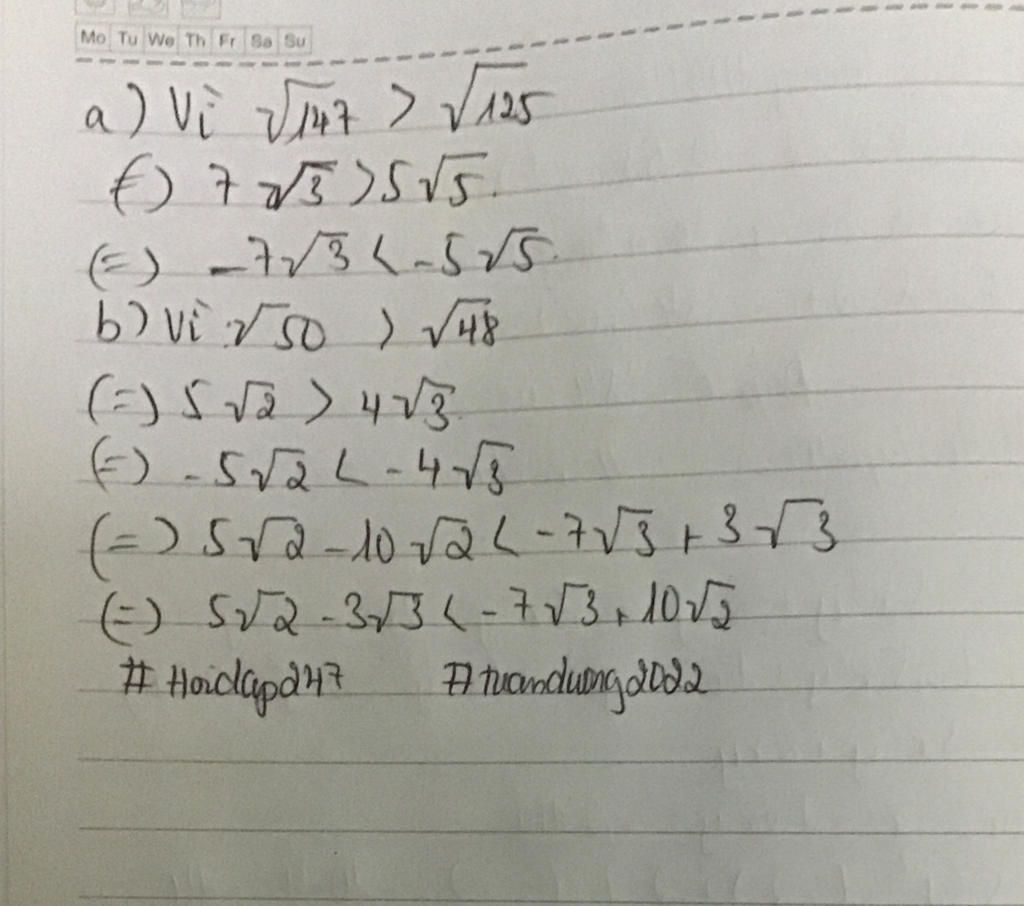 Mo Tu We Th Fr Sa Su
a) Vì √147 > √125
(=) 7√3 > 5√5.
(=) -7√3 < -5√5.
b) Vì √50 > √48
(=) 5√2 > 4√3.
(=) -5√2 < -4√3
(=) 5√2 - 10√2 < -7√3 + 3√3
(=) 5√2 - 3√3 < -7√3 + 10√2
#Hoidap247 #tuanduong2022